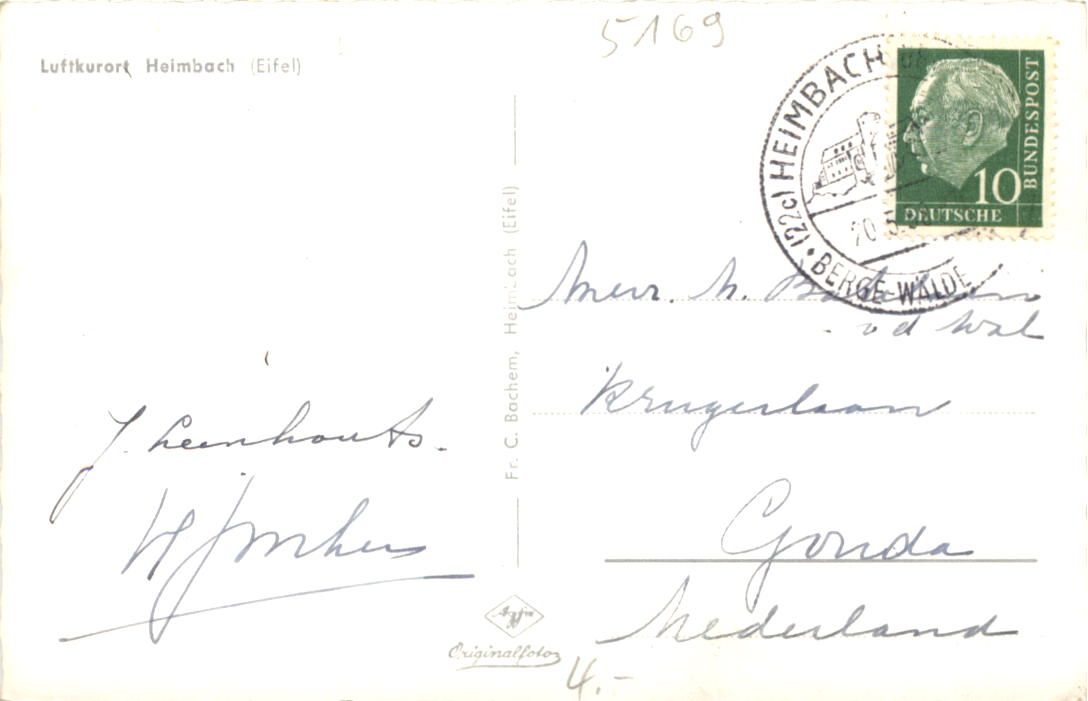 5169
Luftkurort Heimbach (Eifel)
(22c) HEIMBACH
BERGE-WÄLDE
20.5.
BUNDESPOST
10
DEUTSCHE
Fr. C. Bachem, Heimbach (Eifel)
Mevr. N.
vd Wal
Krugerlaan
Gouda
Nederland
J. Leenhouts.
Agfa
Originalfoto
4.-